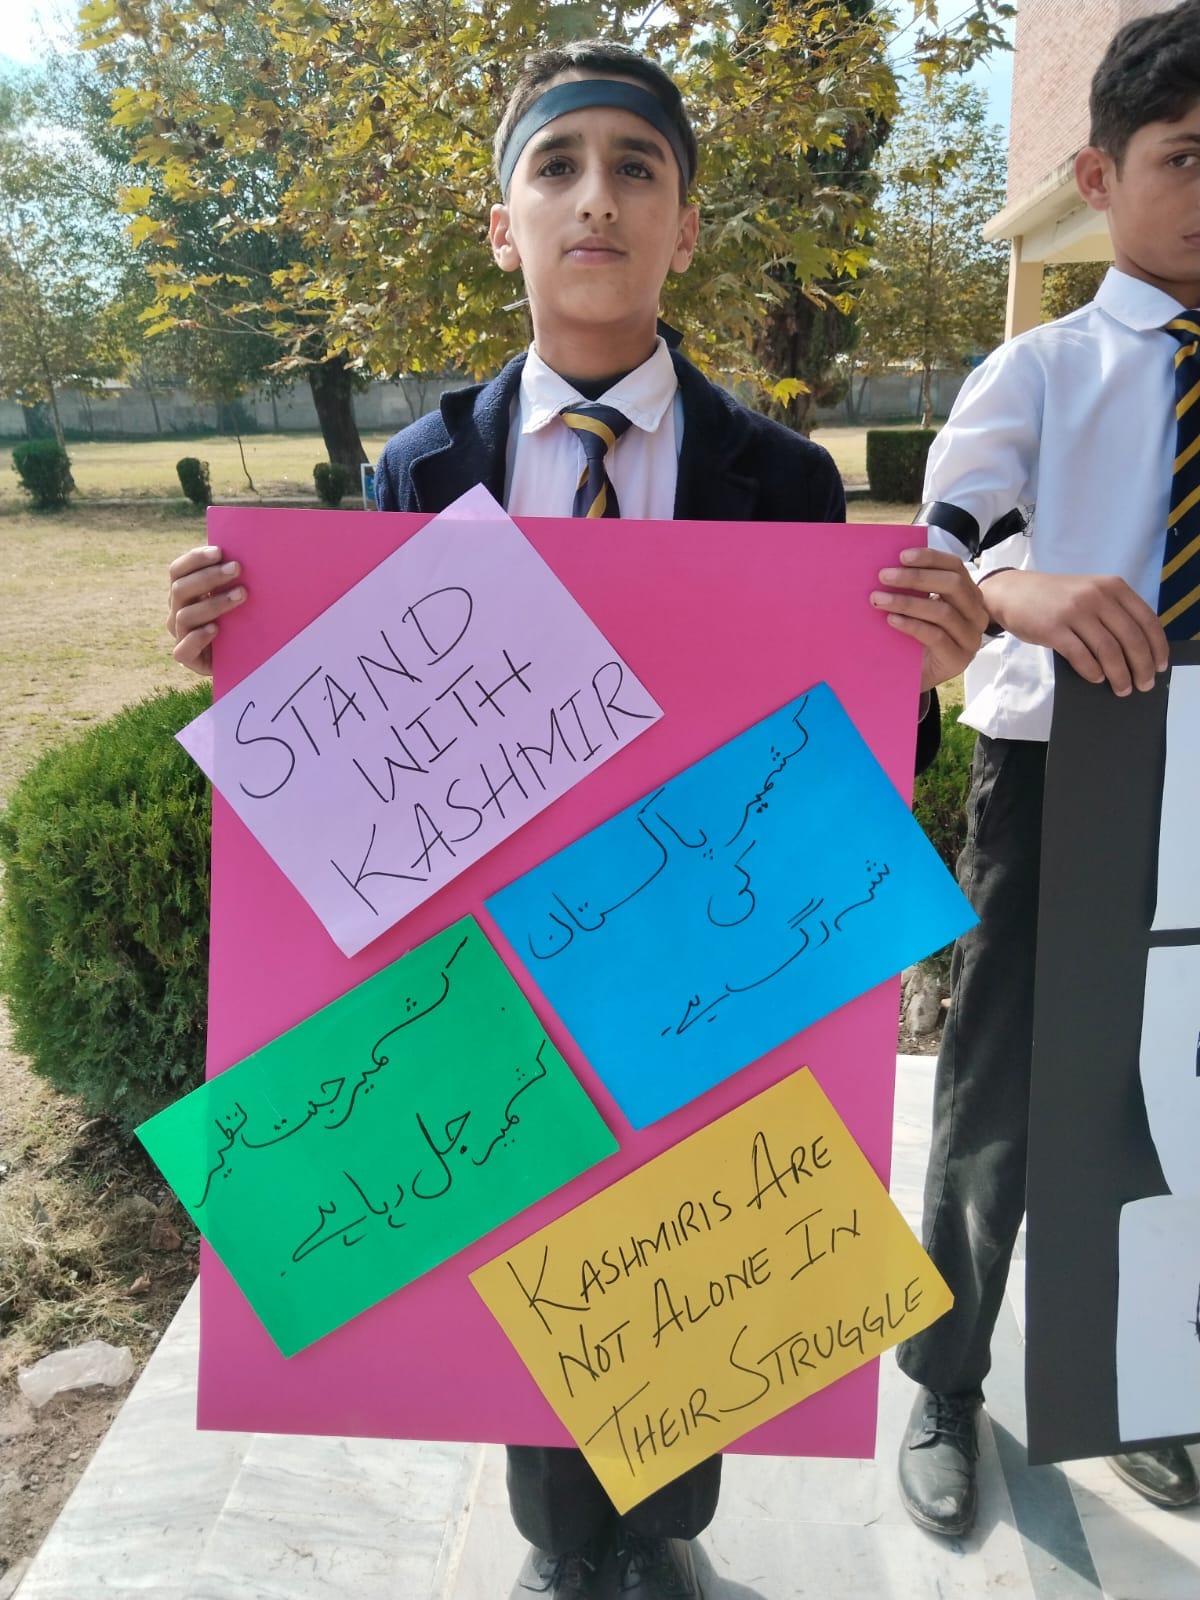 STAND
WITH
KASHMIR
کشمیر پاکستان
کی
شہ رگ ہے۔
کشمیر جنت نظیر
کشمیر جل رہا ہے۔
KASHMIRIS ARE
NOT ALONE IN
THEIR STRUGGLE